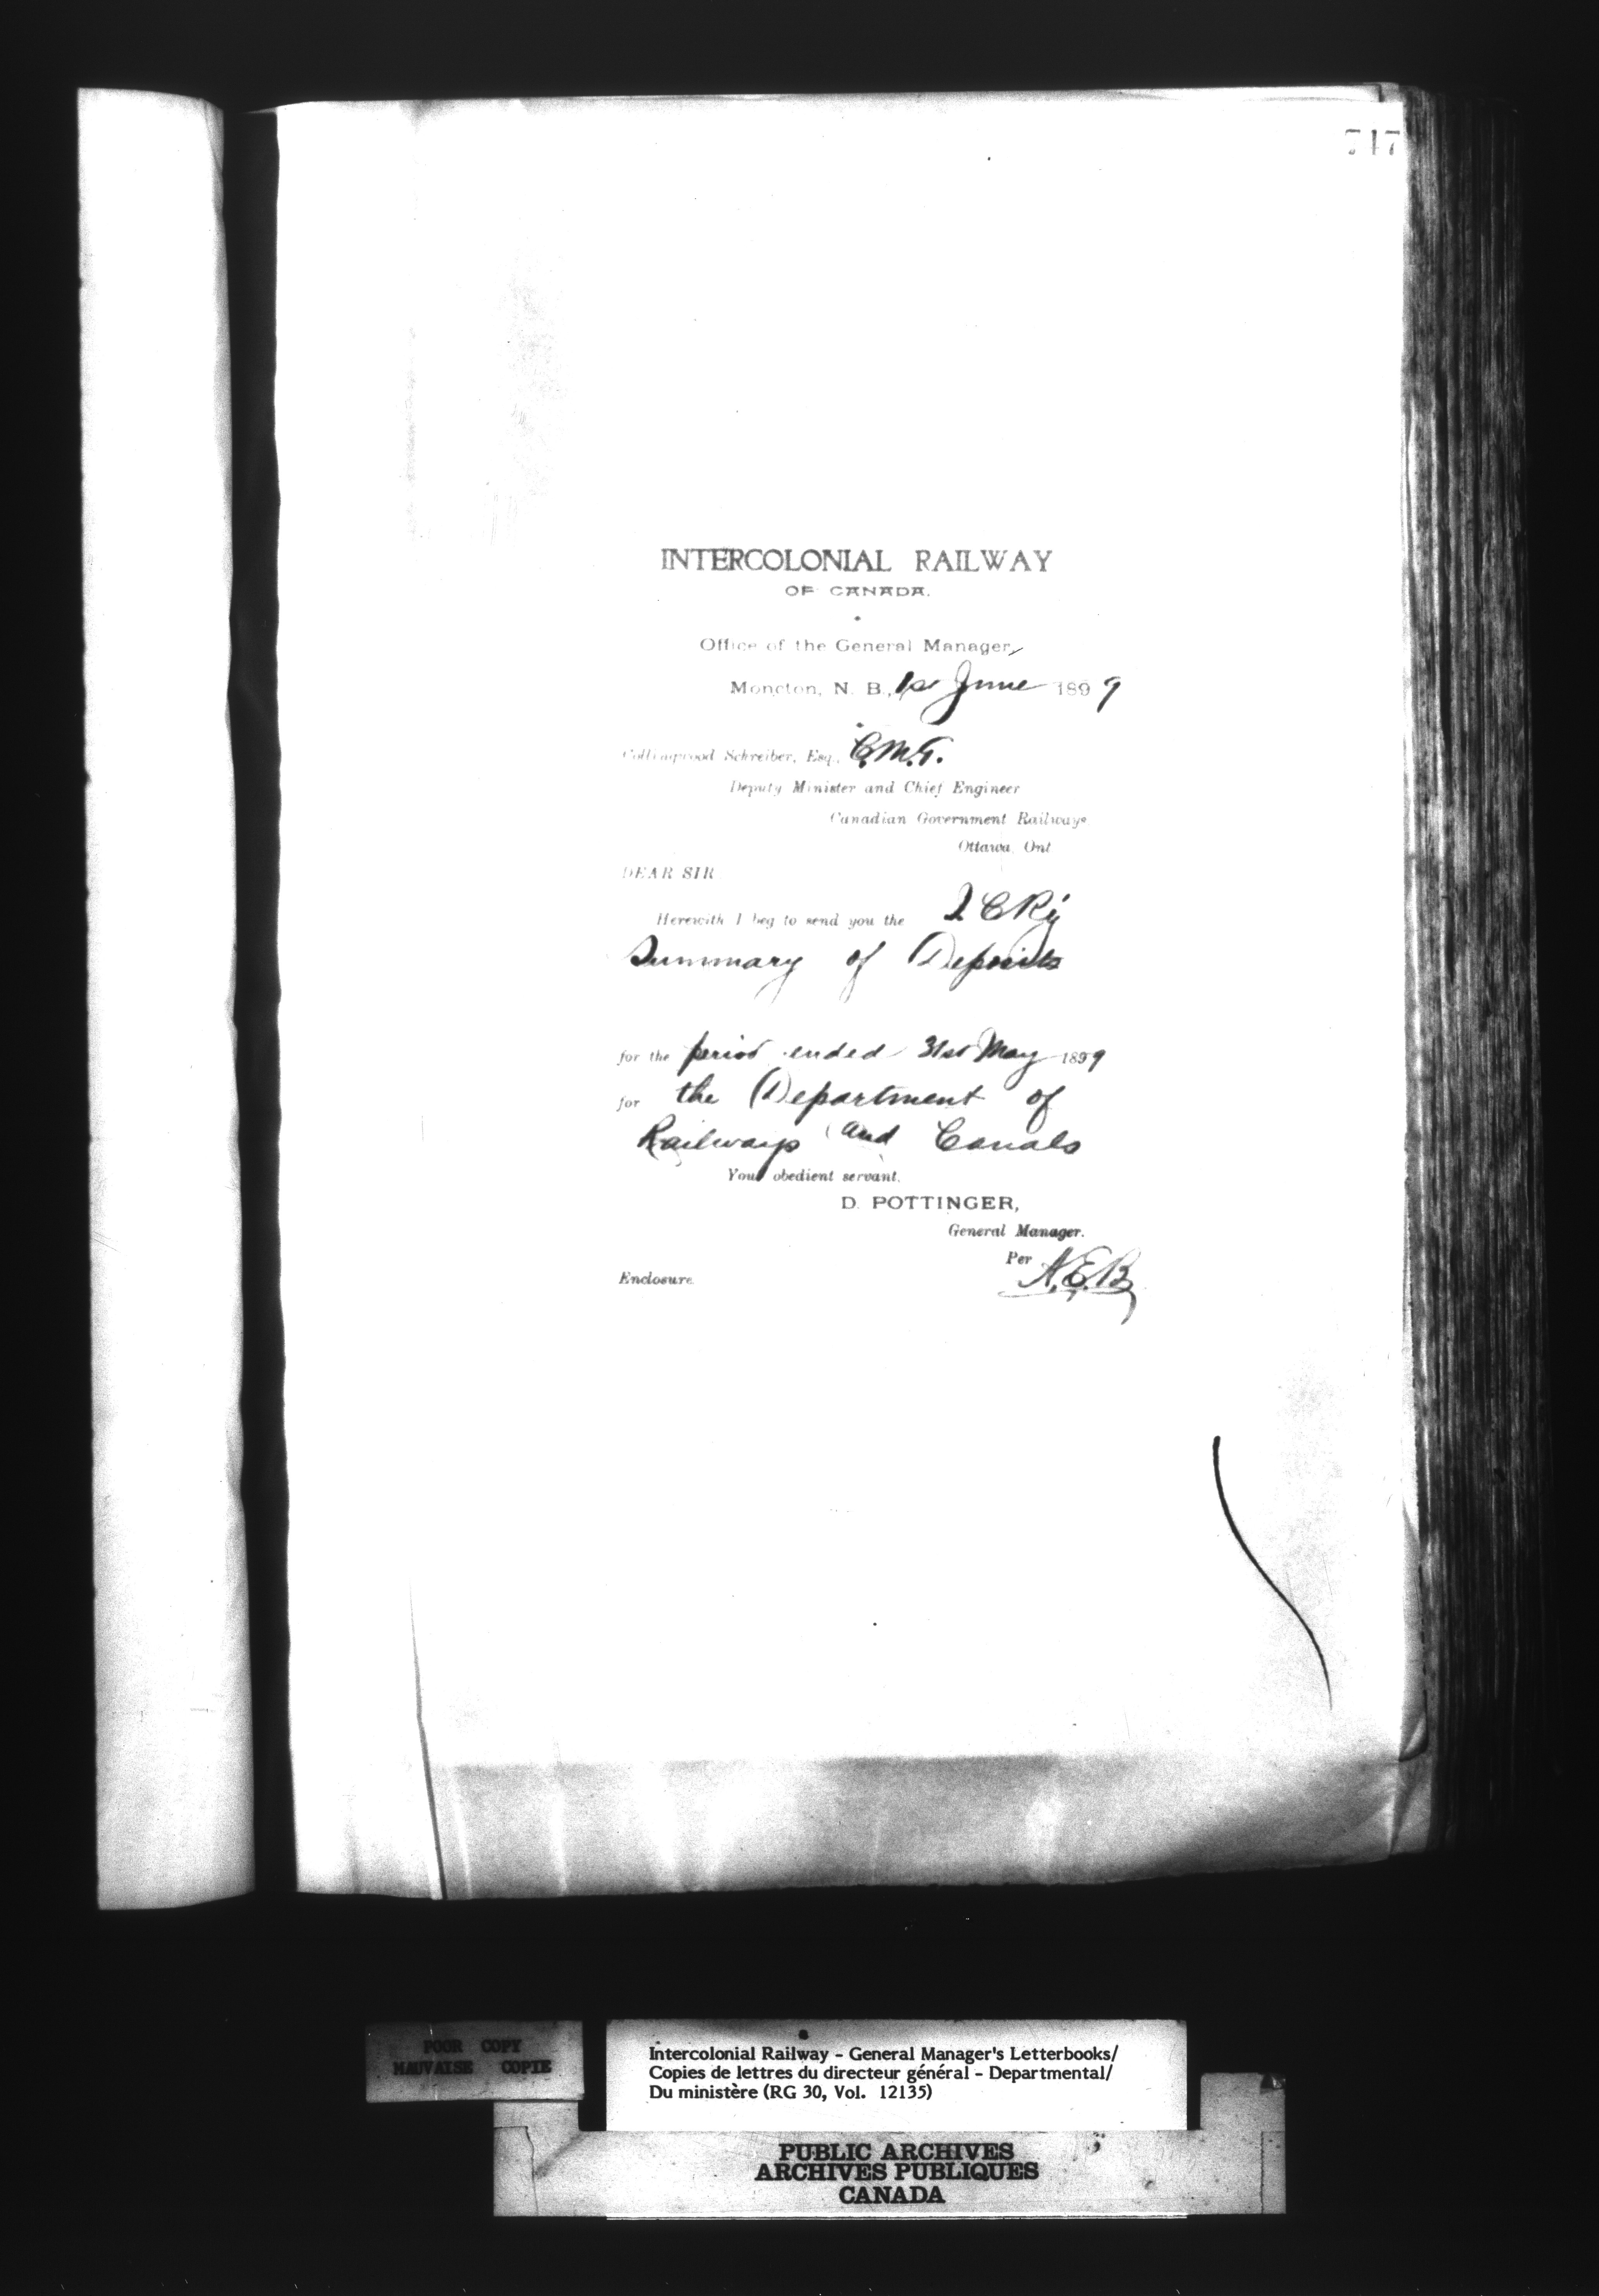 717
INTERCOLONIAL RAILWAY
OF CANADA.
Office of the General Manager,
Moncton, N. B., 1st June 1899
Collingwood Schreiber, Esq., C.M.G.
Deputy Minister and Chief Engineer
Canadian Government Railways
Ottawa, Ont
DEAR SIR
Herewith I beg to send you the I C Ry
Summary of Deposits
for the period ended 31st May 1899
for the Department of
Railways and Canals
Your obedient servant,
D. POTTINGER,
General Manager.
Per A.E.B
Enclosure
POOR COPY
MAUVAISE COPIE
Intercolonial Railway - General Manager's Letterbooks/
Copies de lettres du directeur général - Departmental/
Du ministère (RG 30, Vol. 12135)
PUBLIC ARCHIVES
ARCHIVES PUBLIQUES
CANADA